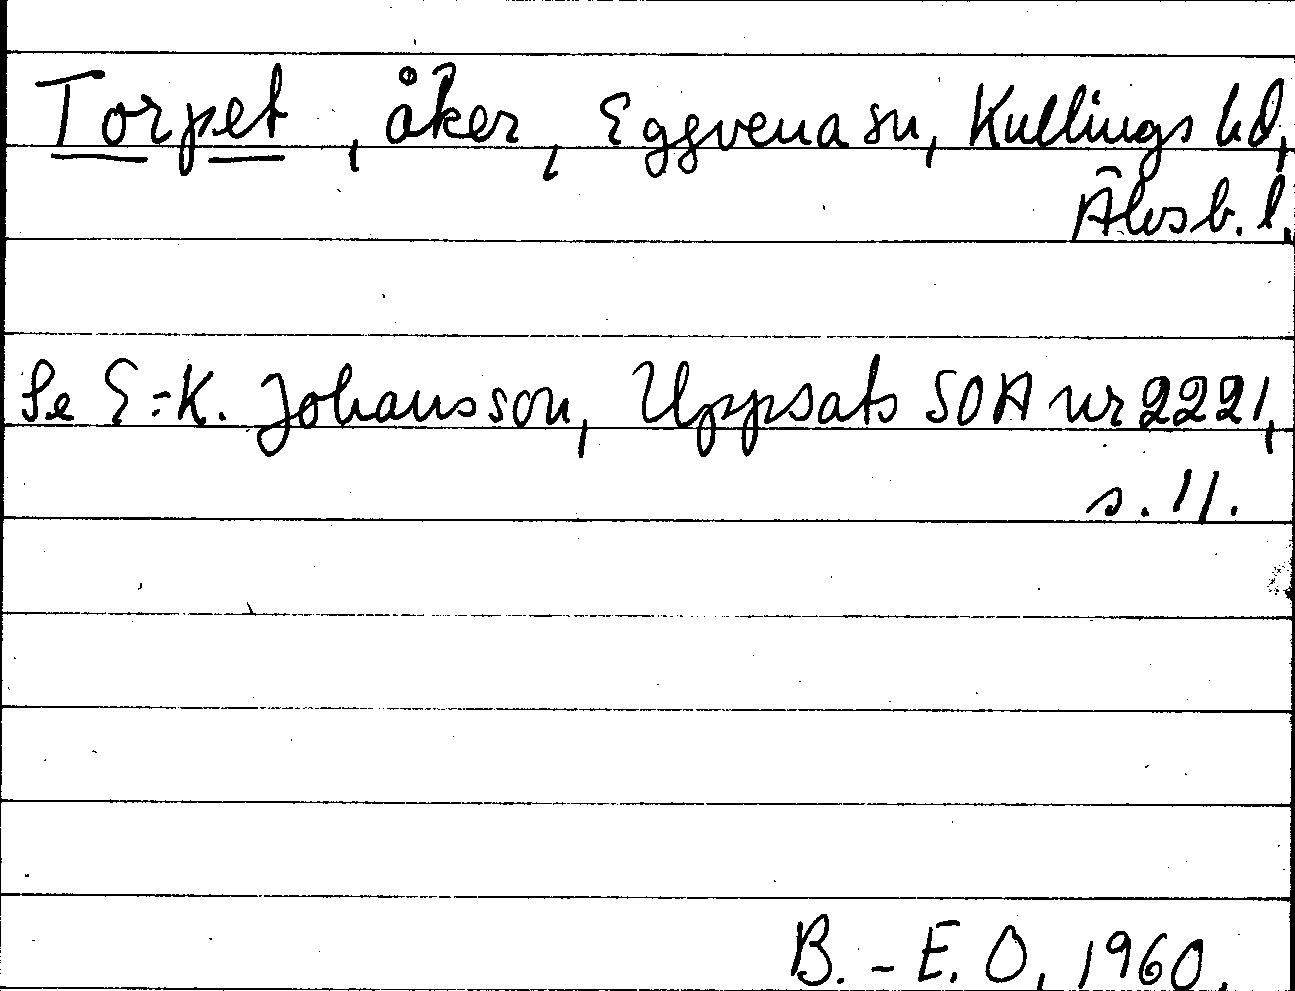 Torpet, åker, Eggvena sn, Kullings hd,
Älvsb. l.
Se E-K. Johansson, Uppsats SOA nr 2221,
s. 11.
B.-E. O, 1960.